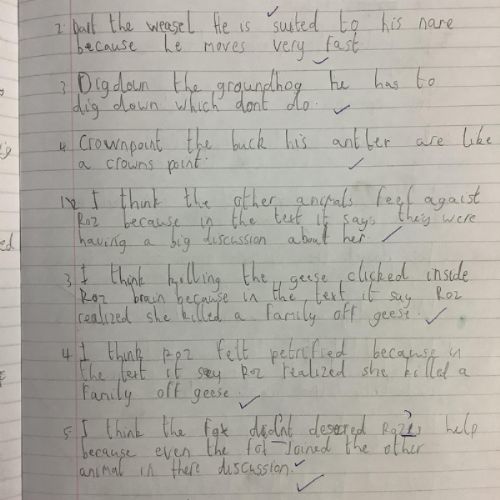 2. Dart the weasel He is suited to his name
because he moves very fast
3 Digdown the groundhog he has to
dig down which dont do.
4 Crownpoint the buck his antler are like
a crowns point.
I think the other animals feel agaist
Roz because in the text it says they were
having a big discussion about her
3 I think killing the geese clicked inside
Roz brain because in the text it say Roz
realized she killed a family off geese.
4 I think Roz felt petrified because in
the text it say Roz realized she killed a
family off geese.
5. I think the fox didn't help
because even the fox joined the other
animal in there discussion.